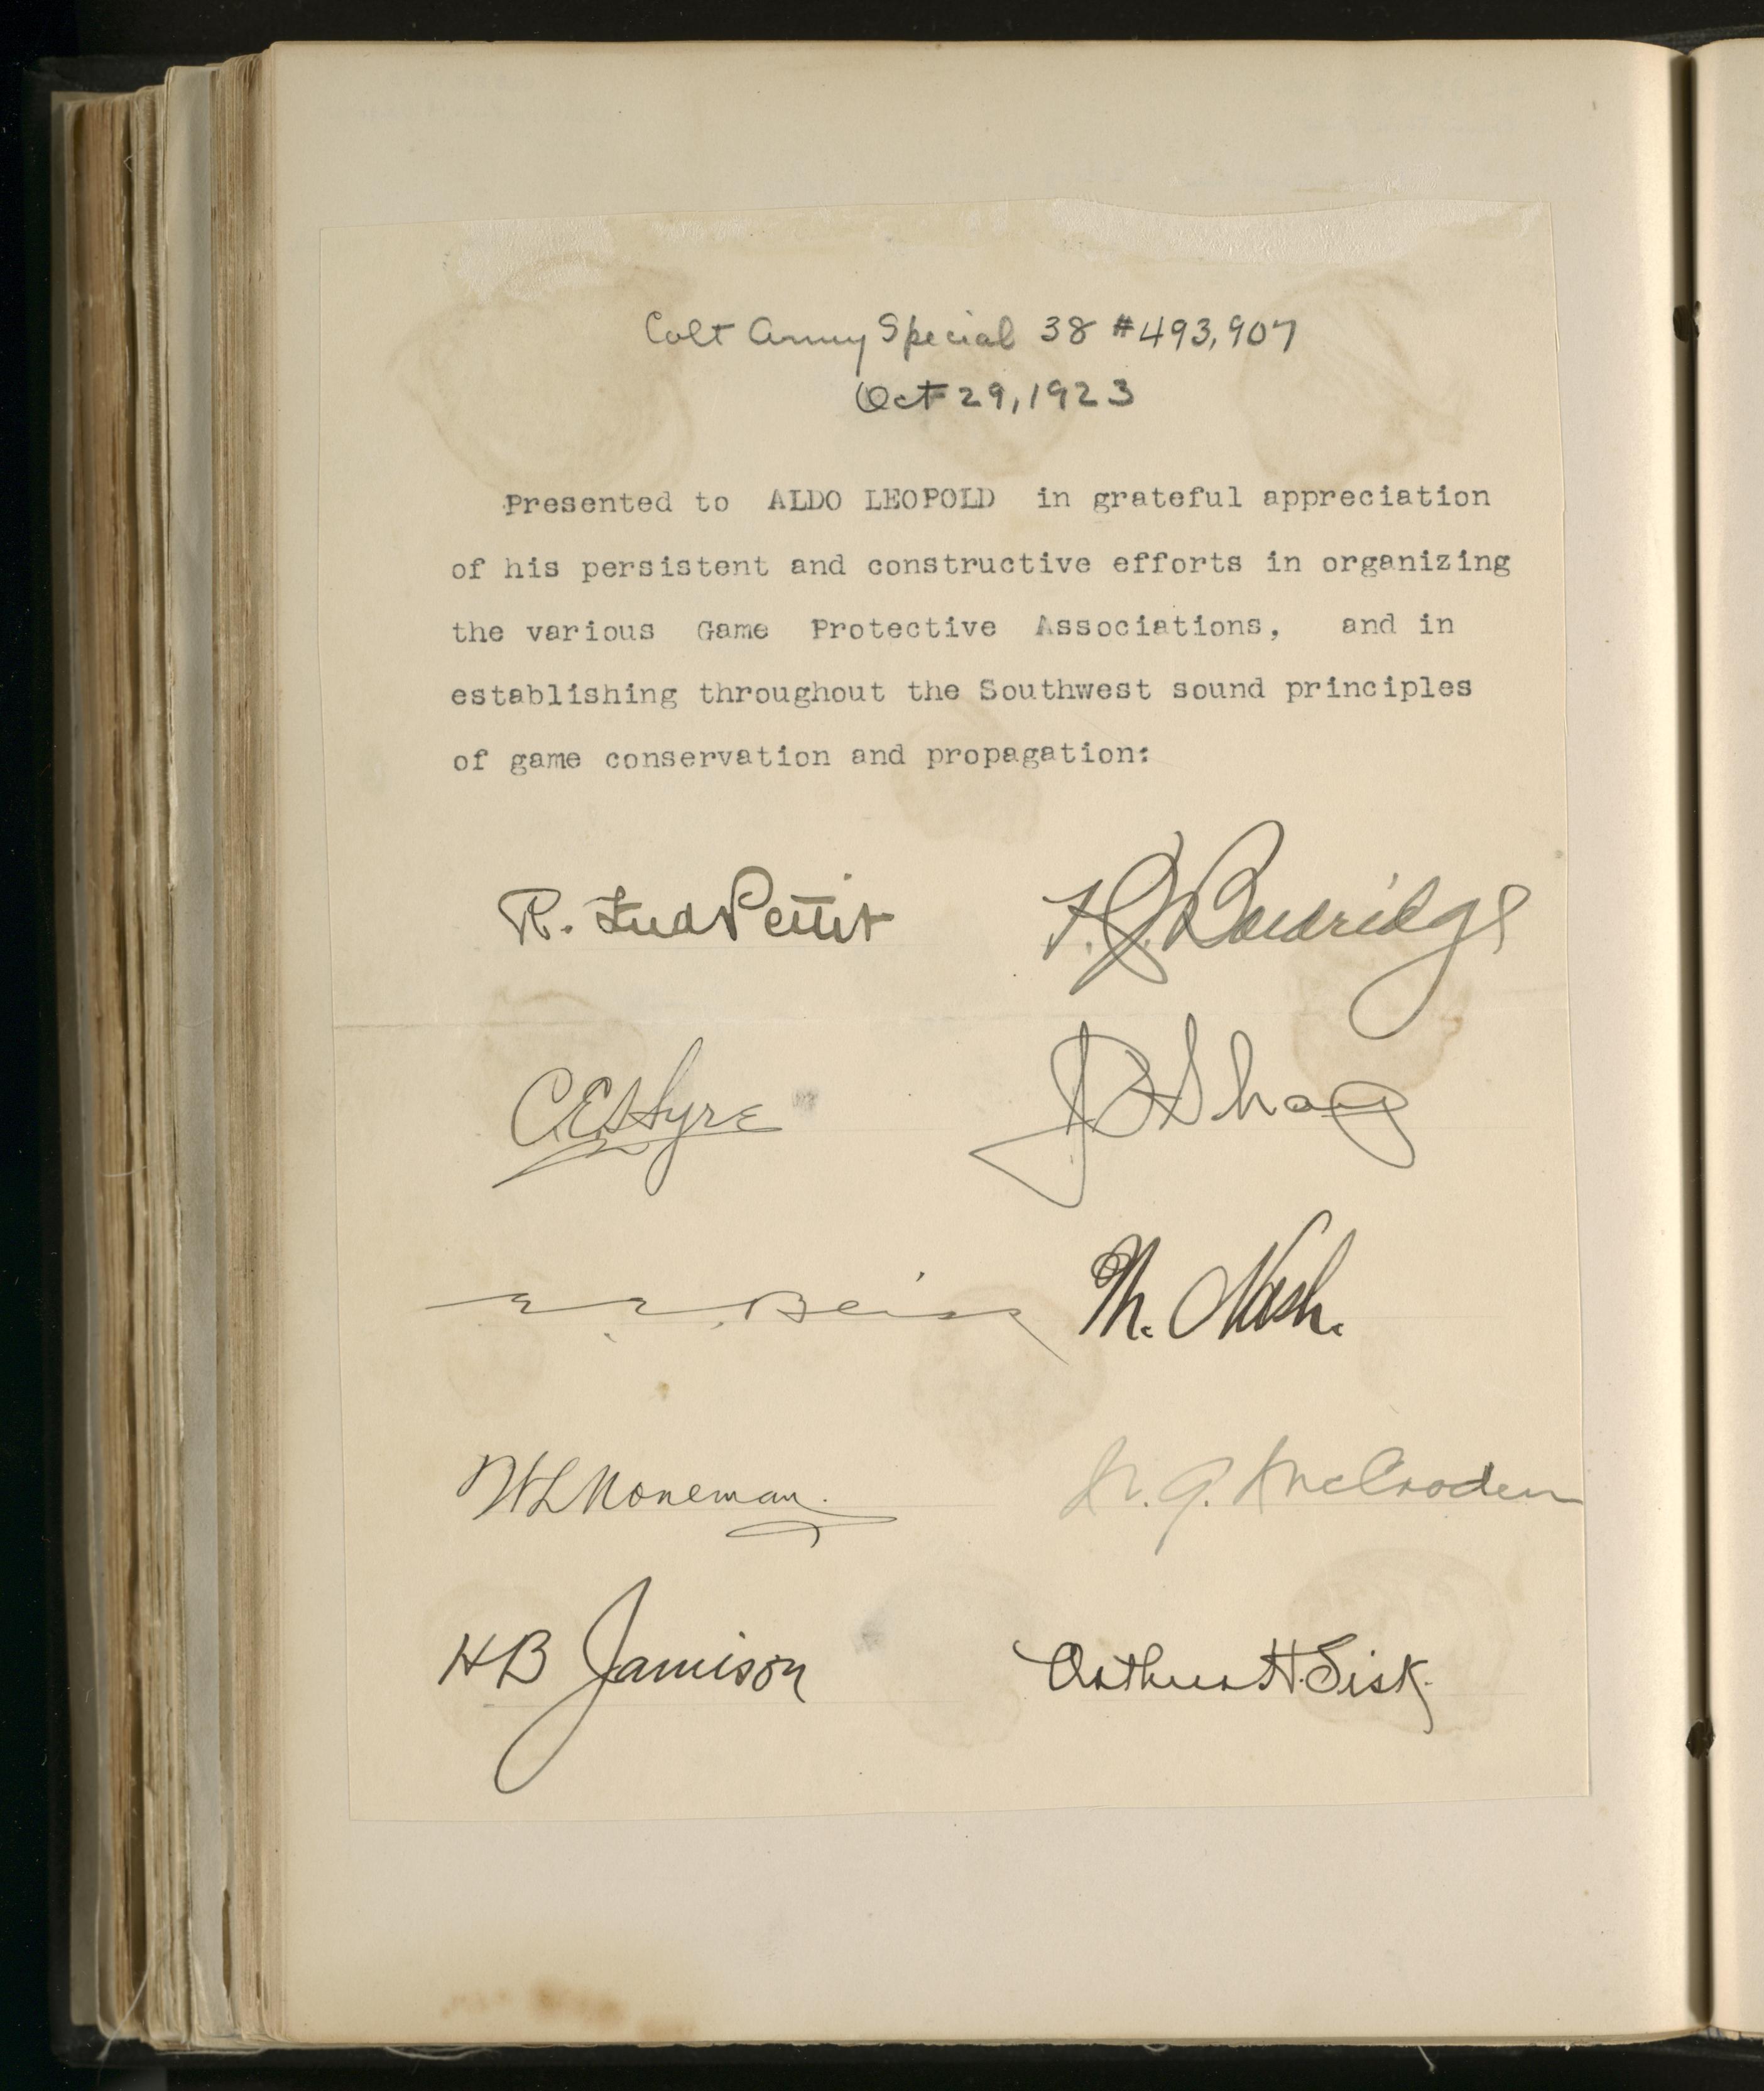 Colt Army Special 38 #493,907
Oct 29, 1923
Presented to ALDO LEOPOLD in grateful appreciation
of his persistent and constructive efforts in organizing
the various Game Protective Associations, and in
establishing throughout the Southwest sound principles
of game conservation and propagation:
R. Fred Pettit
C.E.
E. E.
M. Nash.
H B Jamison
Arthur H. Sisk.